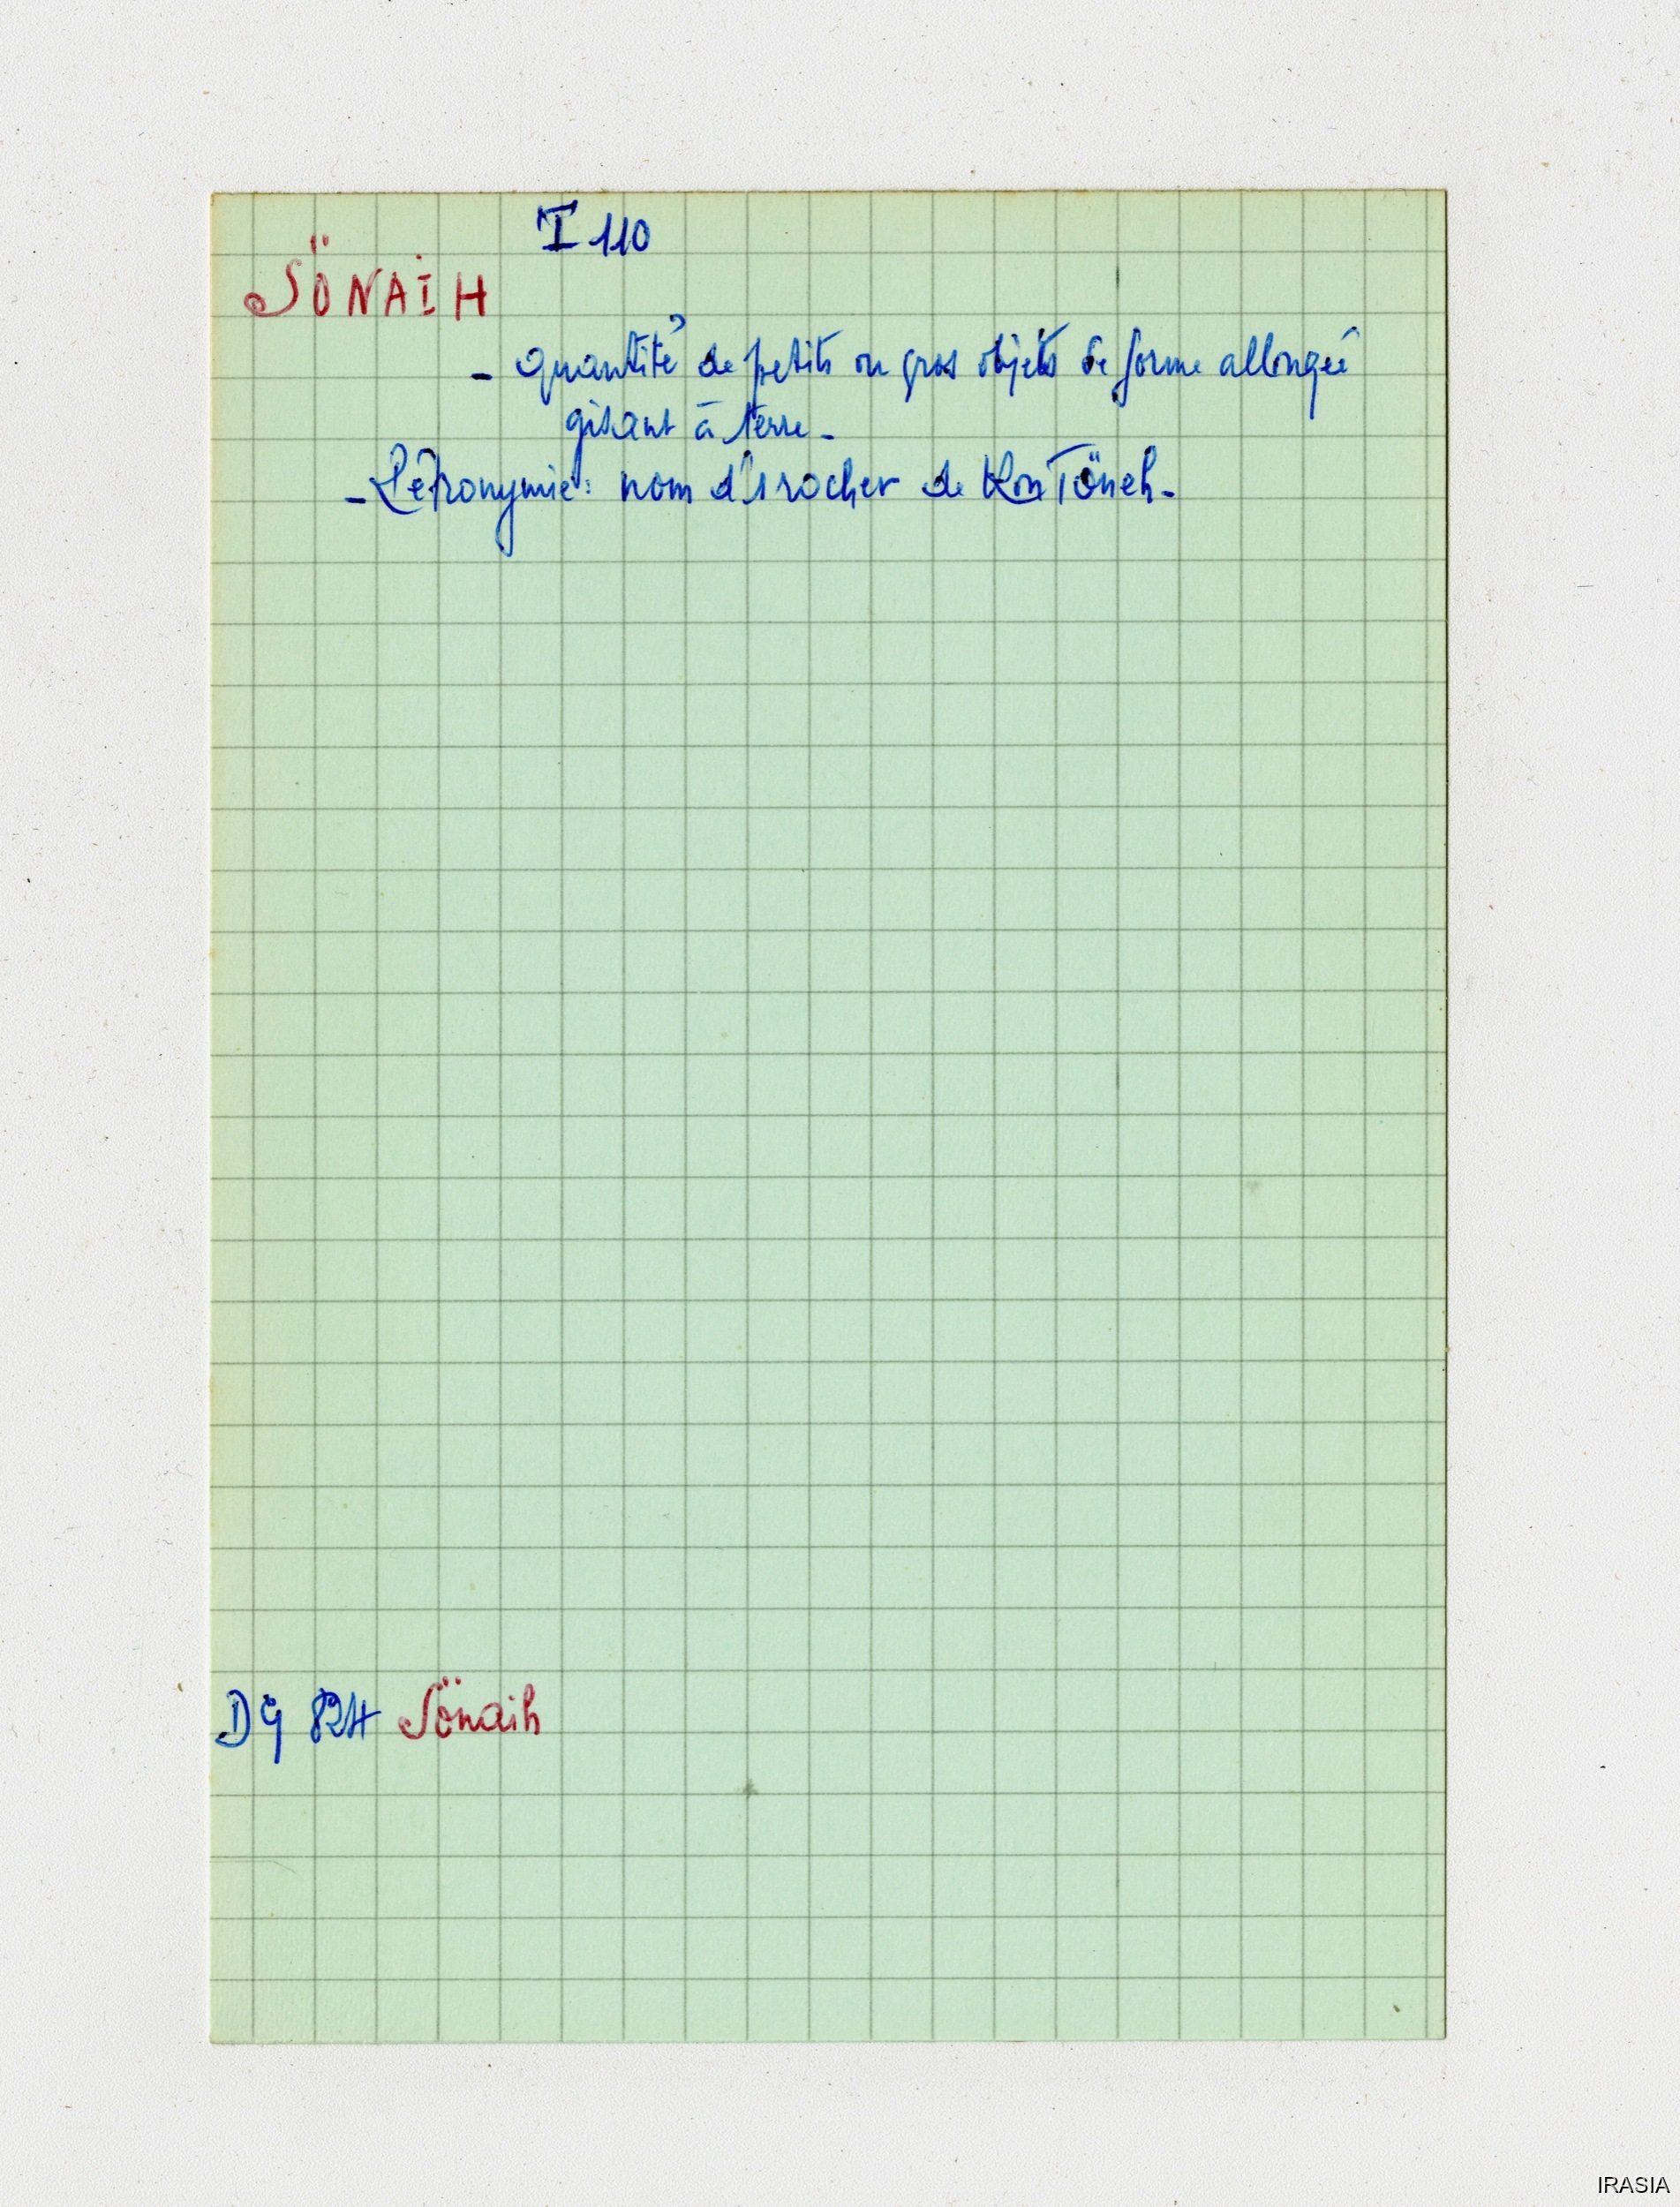 I 110
SÖNAIH
- quantité de petits ou gros objets de forme allongée
gisant à terre -
- Pétronymie : nom d'1 rocher de Kon Töneh -
DG 824 Sönaih
IRASIA